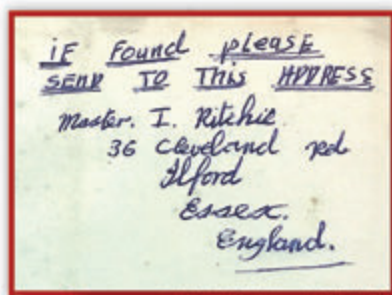 iF Found please
SEND TO This ADDRESS
Master. I. Ritchie
36 Cleveland Rd
Ilford
Essex.
England.